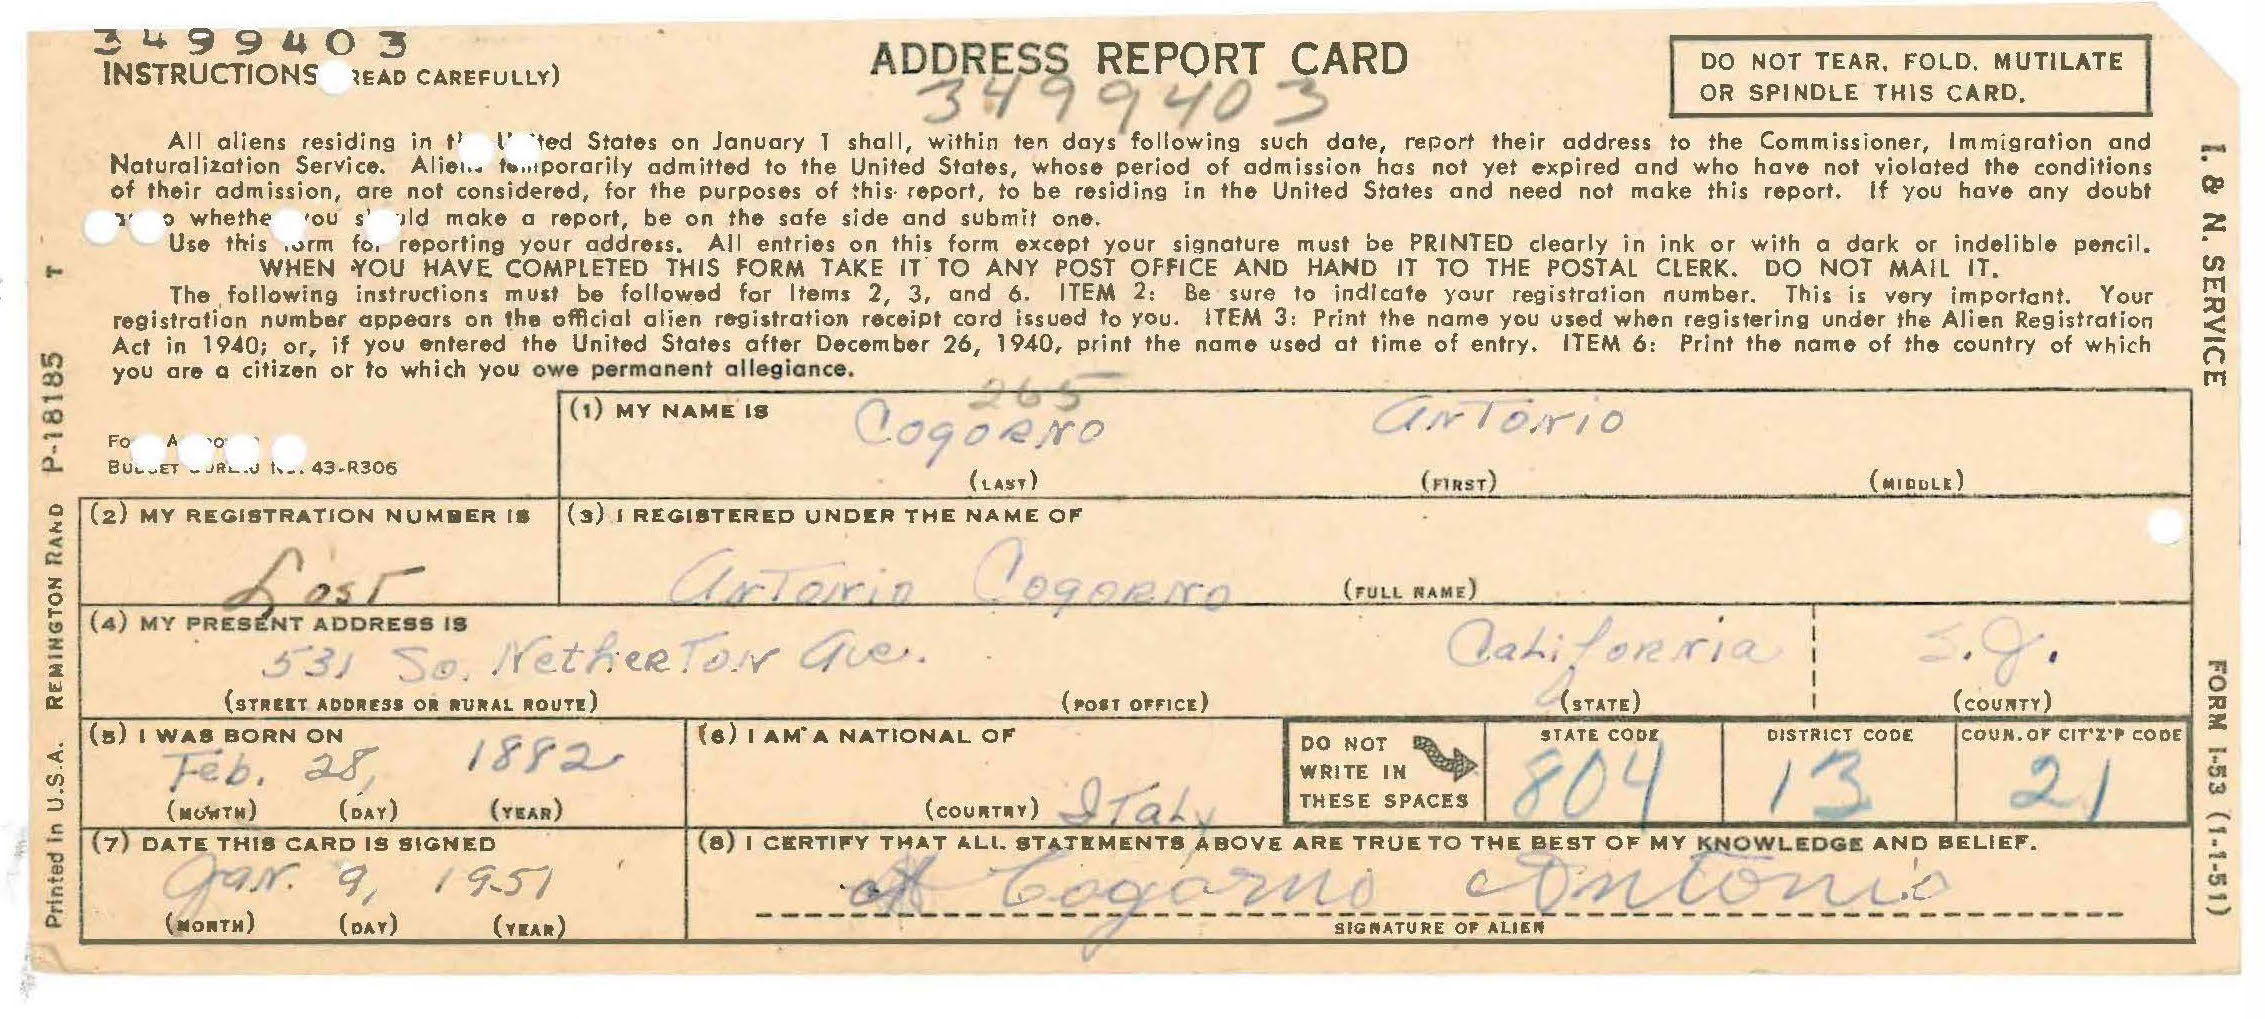 3499403
INSTRUCTIONS READ CAREFULLY)
ADDRESS REPORT CARD
3499403
DO NOT TEAR, FOLD, MUTILATE
OR SPINDLE THIS CARD.
All aliens residing in United States on January 1 shall, within ten days following such date, report their address to the Commissioner, Immigration and
Naturalization Service. Aliens temporarily admitted to the United States, whose period of admission has not yet expired and who have not violated the conditions
of their admission, are not considered, for the purposes of this report, to be residing in the United States and need not make this report. If you have any doubt
whether you should make a report, be on the safe side and submit one.
Use this form for reporting your address. All entries on this form except your signature must be PRINTED clearly in ink or with a dark or indelible pencil.
WHEN YOU HAVE COMPLETED THIS FORM TAKE IT TO ANY POST OFFICE AND HAND IT TO THE POSTAL CLERK. DO NOT MAIL IT.
The following instructions must be followed for Items 2, 3, and 6. ITEM 2: Be sure to indicate your registration number. This is very important. Your
registration number appears on the official alien registration receipt card issued to you. ITEM 3: Print the name you used when registering under the Alien Registration
Act in 1940; or, if you entered the United States after December 26, 1940, print the name used at time of entry. ITEM 6: Print the name of the country of which
you are a citizen or to which you owe permanent allegiance.
BUDGET BUREAU NO. 43-R306
265
(1) MY NAME IS Cogorno Antonio
(LAST) (FIRST) (MIDDLE)
(2) MY REGISTRATION NUMBER IS
Lost
(3) I REGISTERED UNDER THE NAME OF
Antonio Cogorno (FULL NAME)
(4) MY PRESENT ADDRESS IS
531 So. Netherton Ave. California S.J.
(STREET ADDRESS OR RURAL ROUTE) (POST OFFICE) (STATE) (COUNTY)
(5) I WAS BORN ON
Feb. 28, 1882
(MONTH) (DAY) (YEAR)
(6) I AM A NATIONAL OF
(COUNTRY) Italy
DO NOT
WRITE IN
THESE SPACES
STATE CODE
804
DISTRICT CODE
13
COUN. OF CIT'Z'P CODE
21
(7) DATE THIS CARD IS SIGNED
Jan. 9, 1951
(MONTH) (DAY) (YEAR)
(8) I CERTIFY THAT ALL STATEMENTS ABOVE ARE TRUE TO THE BEST OF MY KNOWLEDGE AND BELIEF.
Cogorno Antonio
SIGNATURE OF ALIEN
Printed in U.S.A. REMINGTON RAND P-18185 T
I. & N. SERVICE
FORM I-53 (1-1-51)